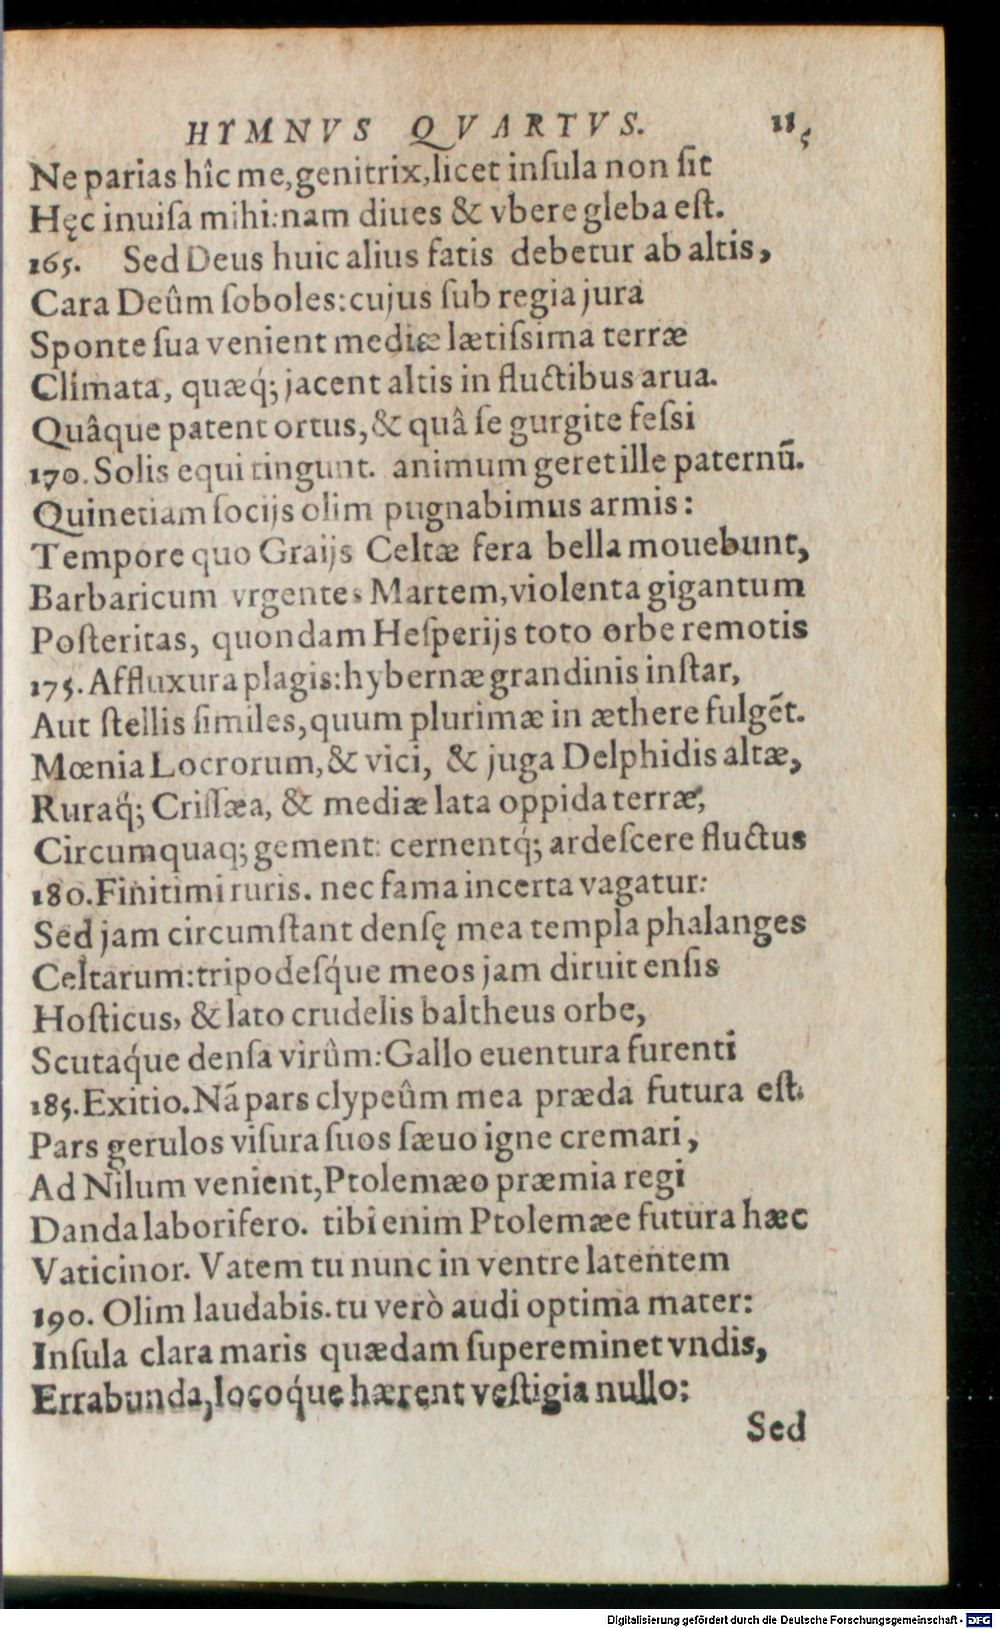 HYMNVS QVARTVS. 115
Ne parias hîc me, genitrix, licet inſula non ſit
Hęc inuiſa mihi: nam diues & vbere gleba eſt.
165. Sed Deus huic alius fatis debetur ab altis,
Cara Deûm ſoboles: cujus ſub regia jura
Sponte ſua venient mediæ lætiſsima terræ
Climata, quæq́; jacent altis in fluctibus arua.
Quâque patent ortus, & quâ ſe gurgite feſsi
170. Solis equi tingunt. animum geret ille paternū.
Quinetiam ſocijs olim pugnabimus armis:
Tempore quo Graijs Celtæ fera bella mouebunt,
Barbaricum vrgentes Martem, violenta gigantum
Poſteritas, quondam Heſperijs toto orbe remotis
175. Affluxura plagis: hybernæ grandinis inſtar,
Aut ſtellis ſimiles, quum plurimæ in æthere fulgēt.
Mœnia Locrorum, & vici, & juga Delphidis altæ,
Ruraq́; Criſſæa, & mediæ lata oppida terræ,
Circumquaq; gement: cernentq́; ardeſcere fluctus
180. Finitimi ruris. nec fama incerta vagatur:
Sed jam circumſtant denſę mea templa phalanges
Celtarum: tripodeſq́ue meos jam diruit enſis
Hoſticus, & lato crudelis baltheus orbe,
Scutaq́ue denſa virûm: Gallo euentura furenti
185. Exitio. Nā pars clypeûm mea præda futura eſt.
Pars gerulos viſura ſuos ſæuo igne cremari,
Ad Nilum venient, Ptolemæo præmia regi
Danda laborifero. tibi enim Ptolemæe futura hæc
Vaticinor. Vatem tu nunc in ventre latentem
190. Olim laudabis. tu verò audi optima mater:
Inſula clara maris quædam ſupereminet vndis,
Errabunda, locoq́ue hærent veſtigia nullo:
Sed
Digitalisierung gefördert durch die Deutsche Forschungsgemeinschaft - DFG